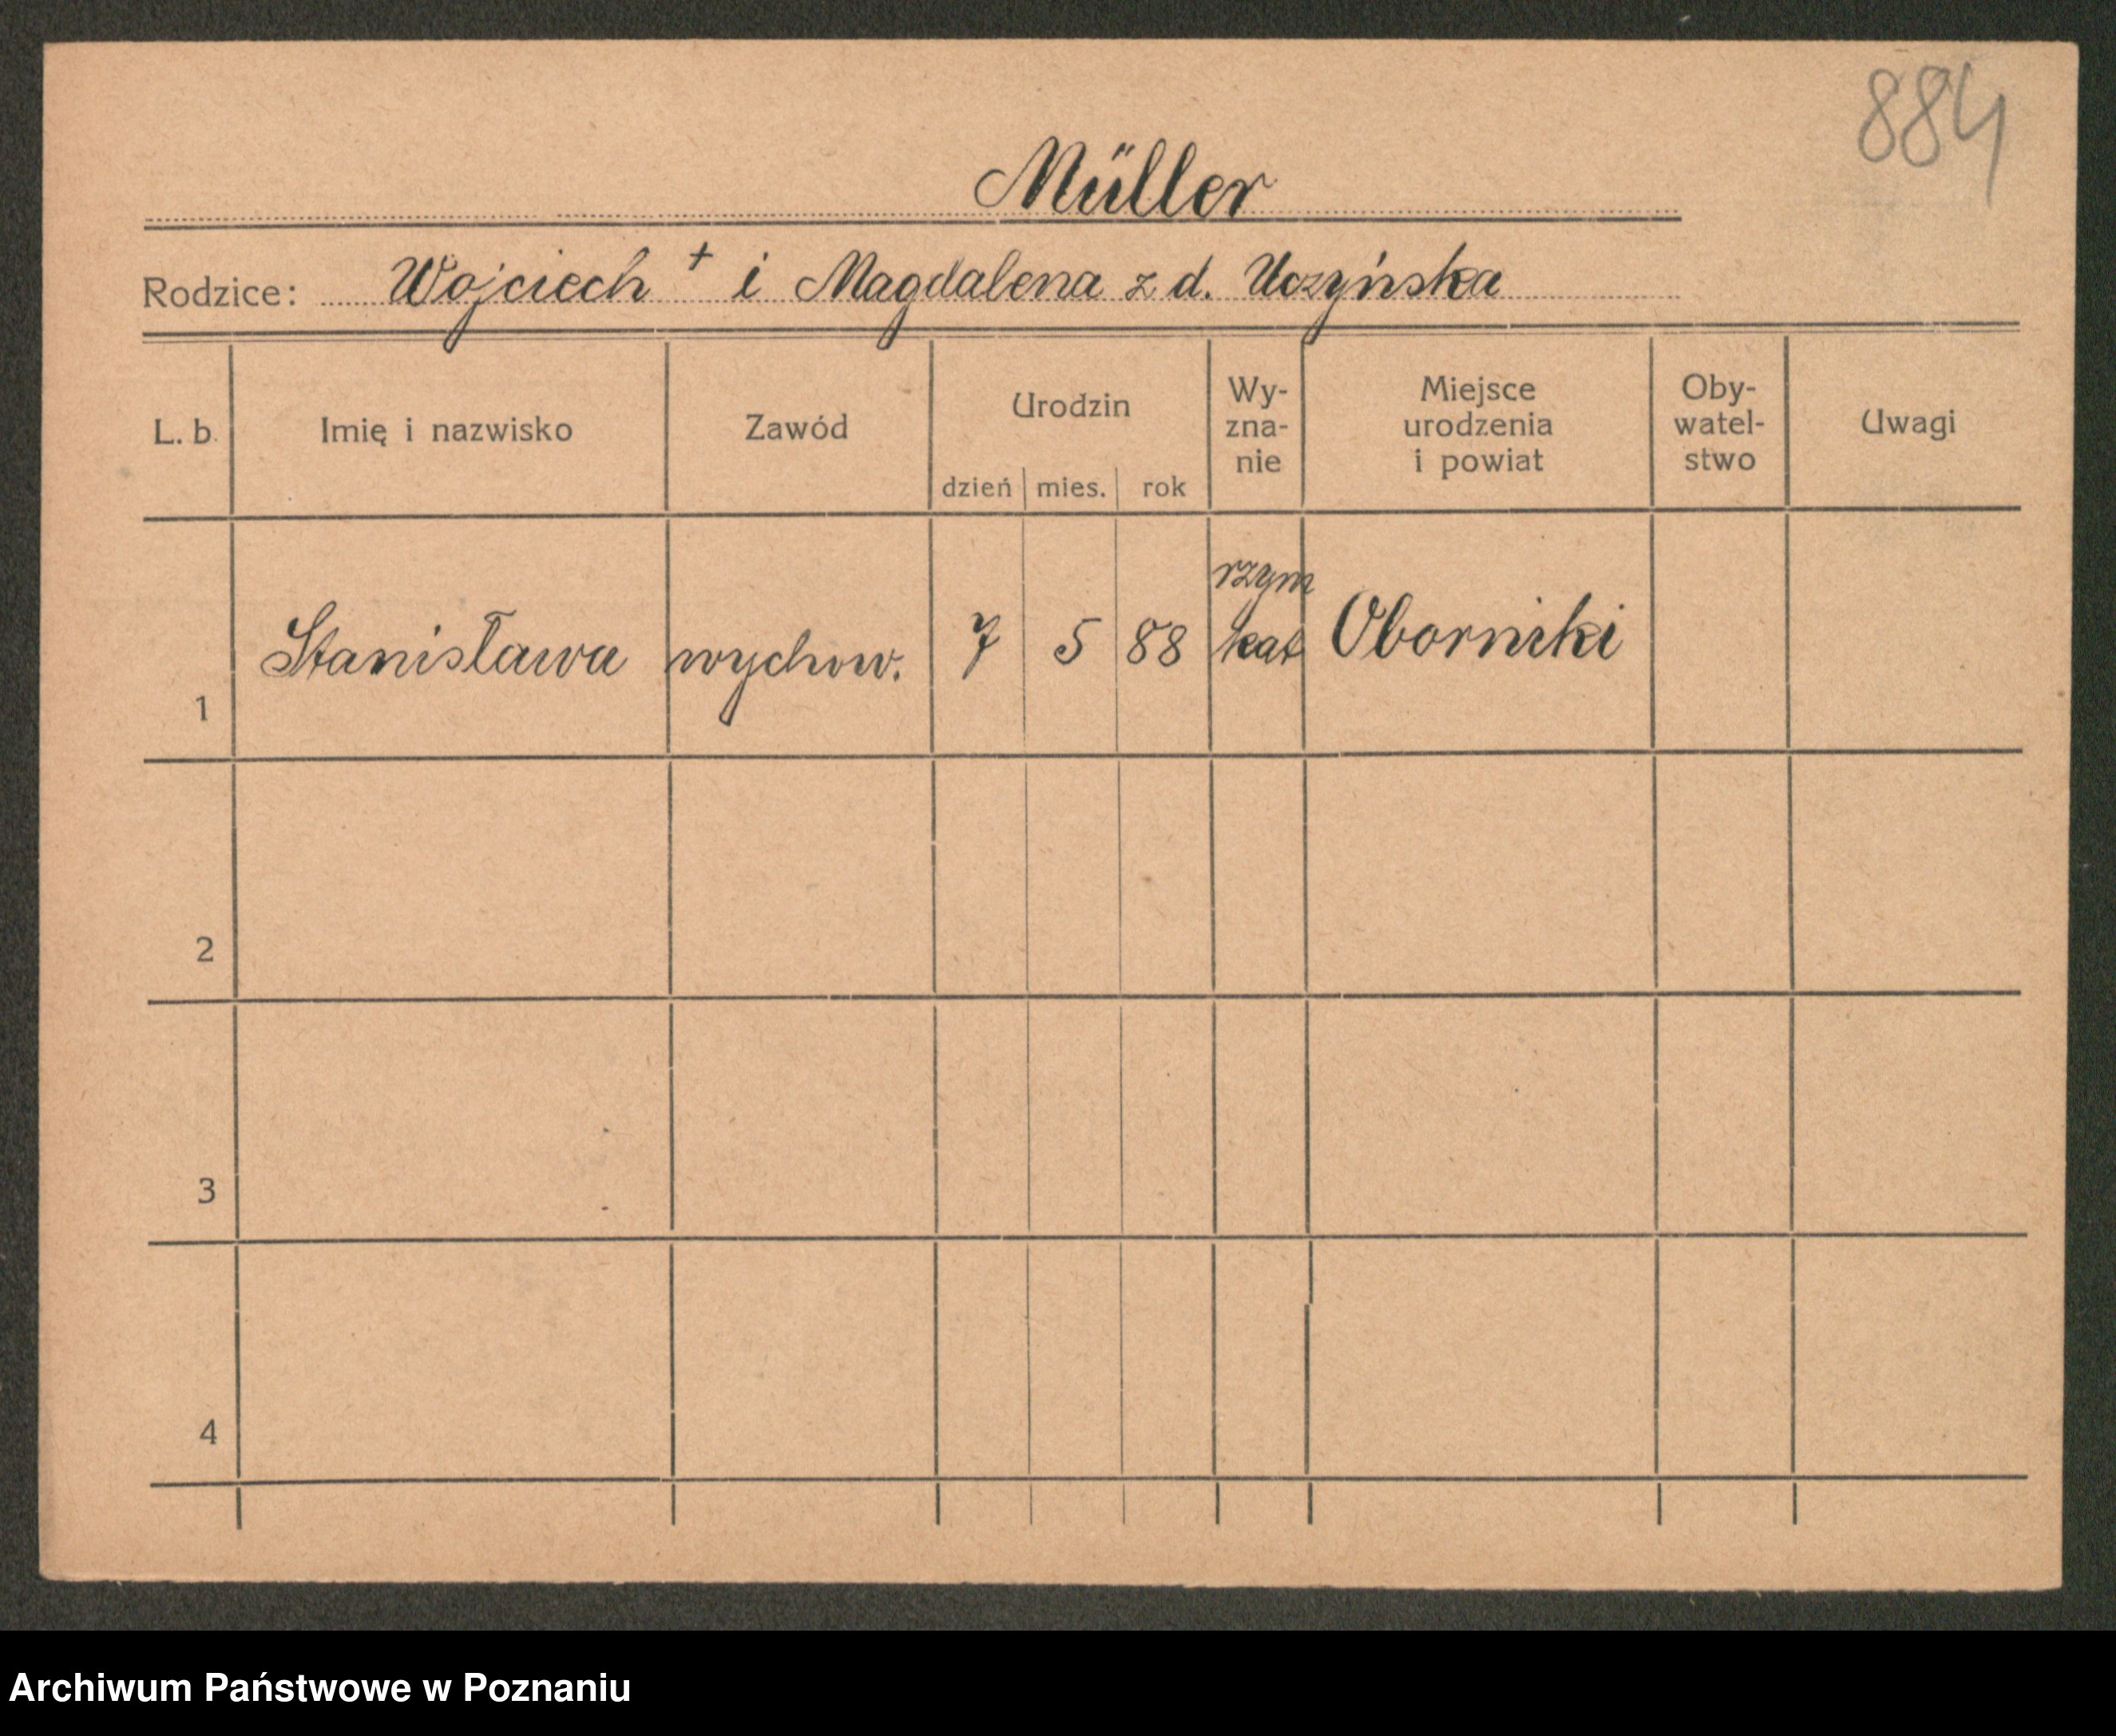 884
Müller
Rodzice: Wojciech + i Magdalena z d. Uczyńska
L. b. Imię i nazwisko Zawód Urodzin dzień mies. rok Wy-zna-nie Miejsce urodzenia i powiat Oby-watel-stwo Uwagi
1 Stanisława wychow. 7 5 88 rzym kat Oborniki
2
3
4
Archiwum Państwowe w Poznaniu